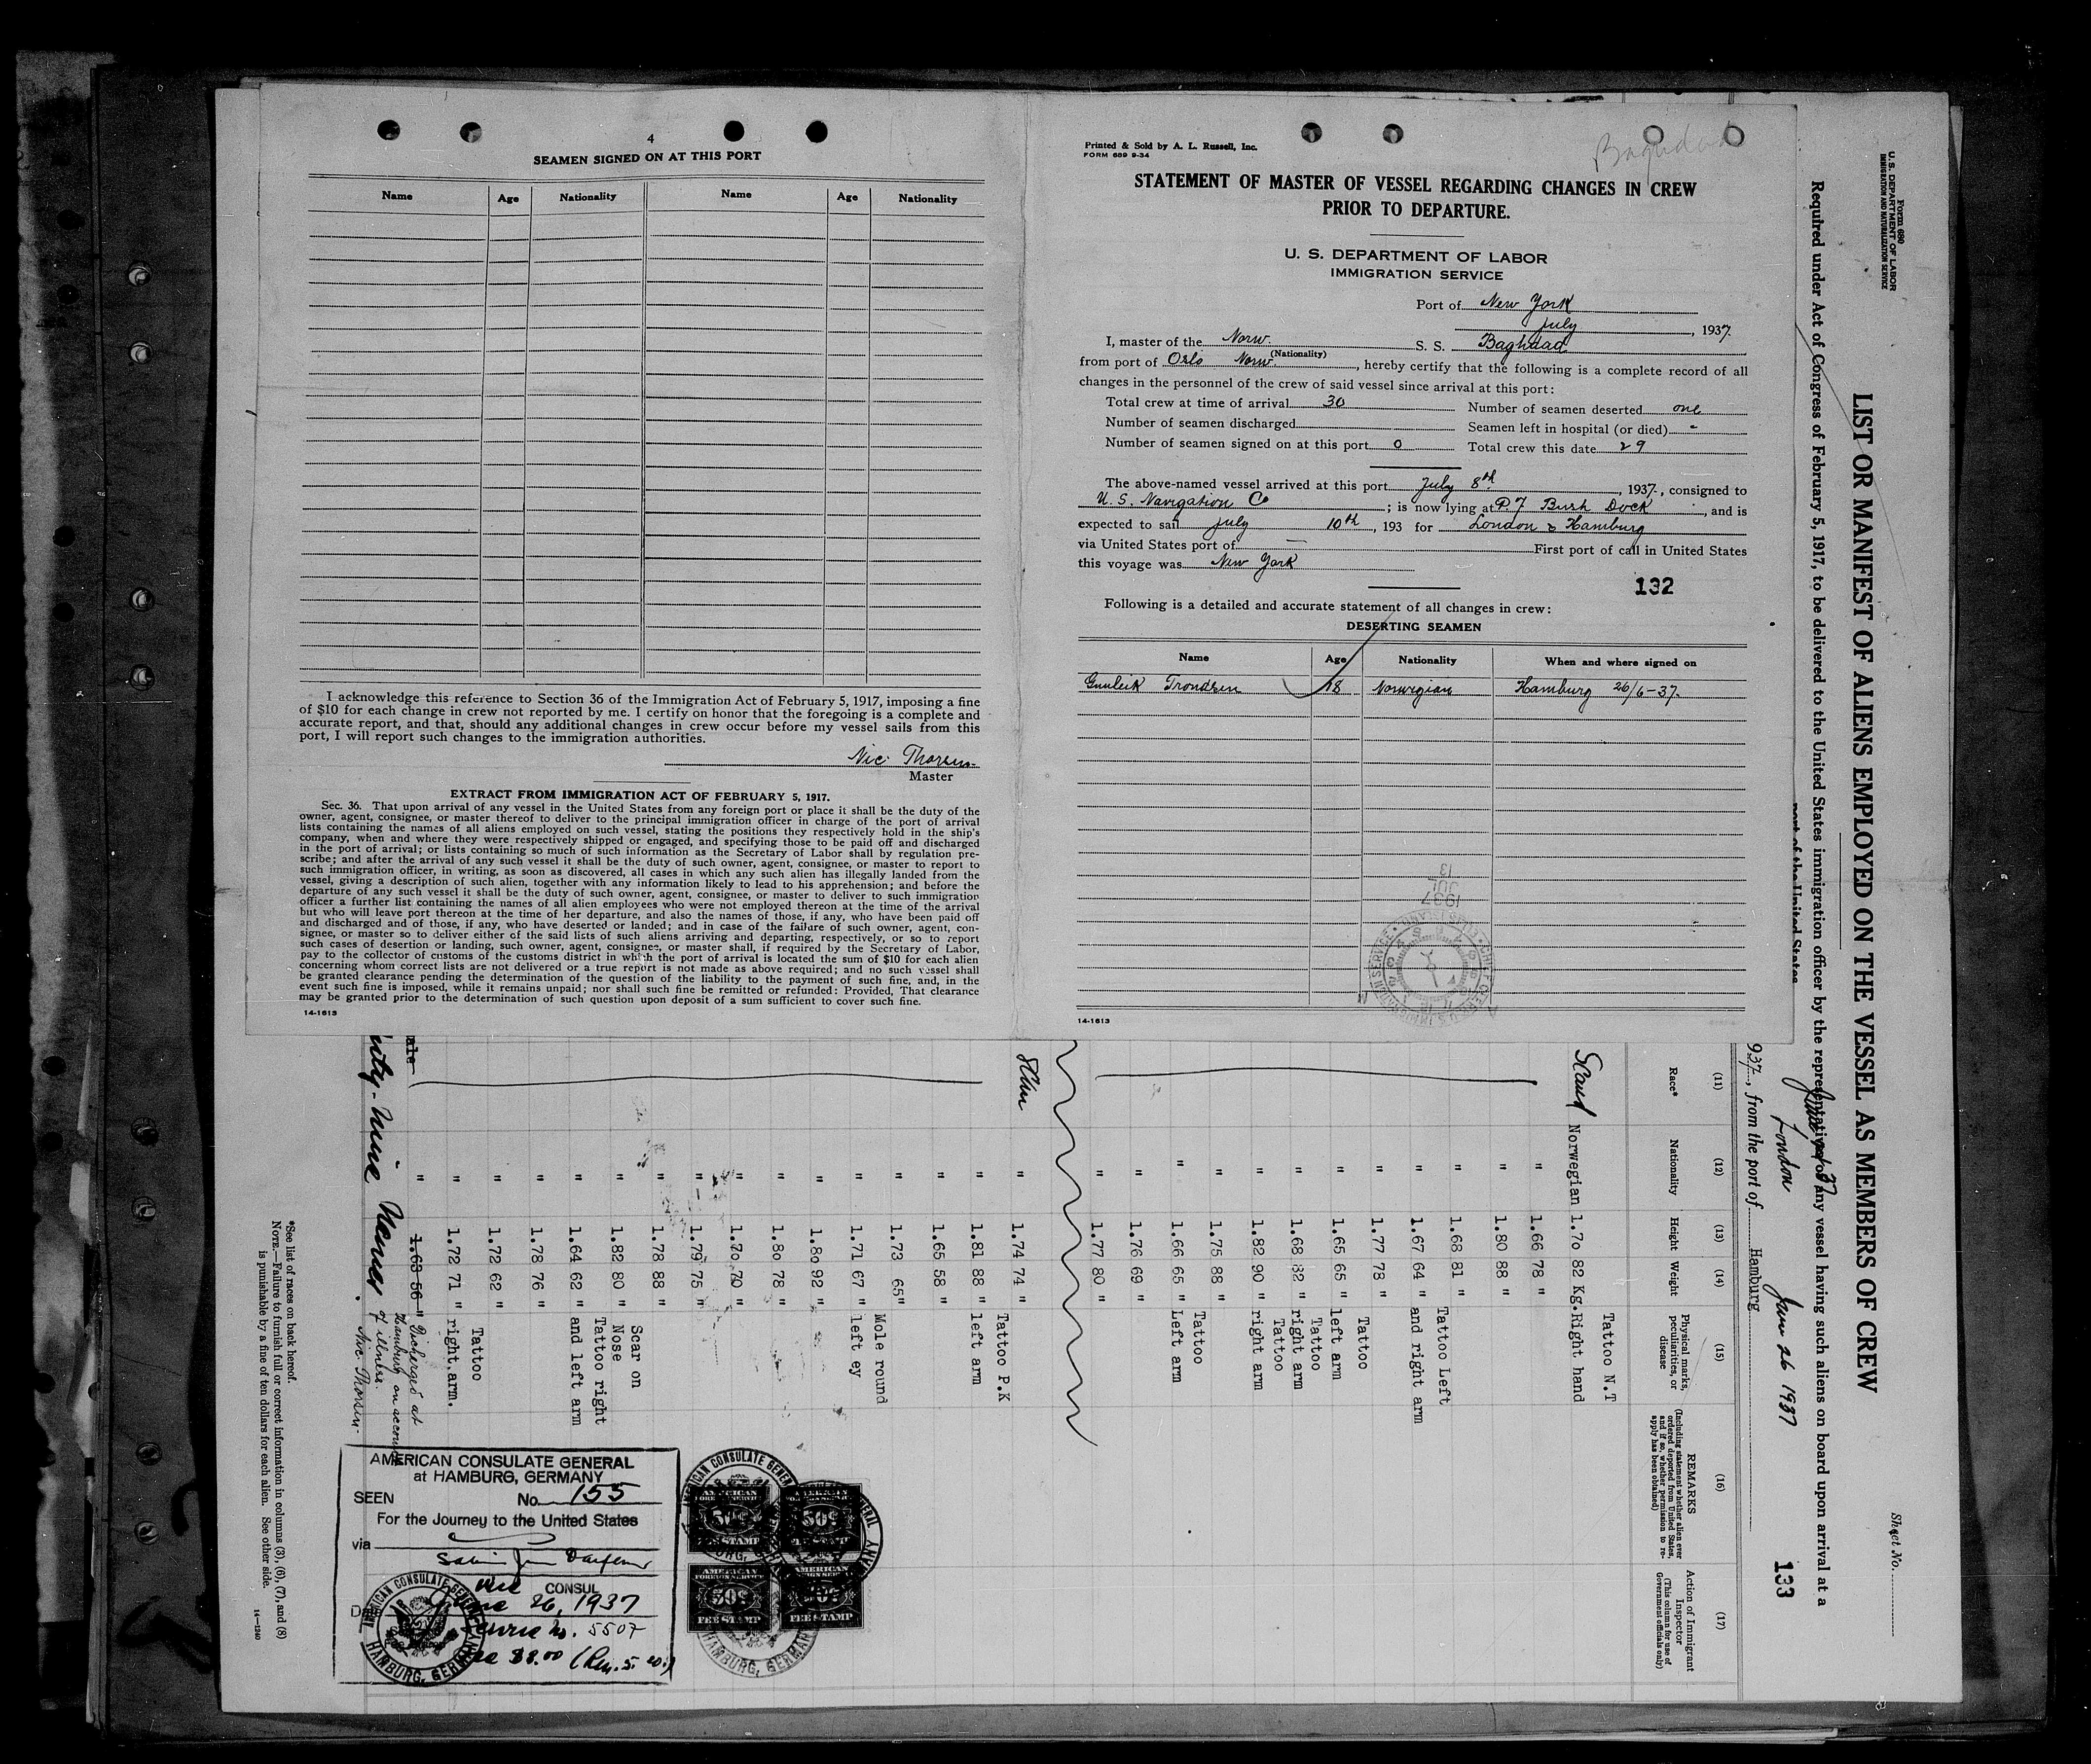 4
SEAMEN SIGNED ON AT THIS PORT
Name Age Nationality Name Age Nationality
I acknowledge this reference to Section 36 of the Immigration Act of February 5, 1917, imposing a fine
of $10 for each change in crew not reported by me. I certify on honor that the foregoing is a complete and
accurate report, and that, should any additional changes in crew occur before my vessel sails from this
port, I will report such changes to the immigration authorities.
Nic. Thorsen
Master
EXTRACT FROM IMMIGRATION ACT OF FEBRUARY 5, 1917.
Sec. 36. That upon arrival of any vessel in the United States from any foreign port or place it shall be the duty of the
owner, agent, consignee, or master thereof to deliver to the principal immigration officer in charge of the port of arrival
lists containing the names of all aliens employed on such vessel, stating the positions they respectively hold in the ship's
company, when and where they were respectively shipped or engaged, and specifying those to be paid off and discharged
in the port of arrival; or lists containing so much of such information as the Secretary of Labor shall by regulation pre-
scribe; and after the arrival of any such vessel it shall be the duty of such owner, agent, consignee, or master to report to
such immigration officer, in writing, as soon as discovered, all cases in which any such alien has illegally landed from the
vessel, giving a description of such alien, together with any information likely to lead to his apprehension; and before the
departure of any such vessel it shall be the duty of such owner, agent, consignee, or master to deliver to such immigration
officer a further list containing the names of all alien employees who were not employed thereon at the time of the arrival
but who will leave port thereon at the time of her departure, and also the names of those, if any, who have been paid off
and discharged and of those, if any, who have deserted or landed; and in case of the failure of such owner, agent, con-
signee, or master so to deliver either of the said lists of such aliens arriving and departing, respectively, or so to report
such cases of desertion or landing, such owner, agent, consignee, or master shall, if required by the Secretary of Labor,
pay to the collector of customs of the customs district in which the port of arrival is located the sum of $10 for each alien
concerning whom correct lists are not delivered or a true report is not made as above required; and no such vessel shall
be granted clearance pending the determination of the question of the liability to the payment of such fine, and, in the
event such fine is imposed, while it remains unpaid; nor shall such fine be remitted or refunded: Provided, That clearance
may be granted prior to the determination of such question upon deposit of a sum sufficient to cover such fine.
14-1613
Baghdad
Printed & Sold by A. L. Russell, Inc.
FORM 689 9-34
STATEMENT OF MASTER OF VESSEL REGARDING CHANGES IN CREW
PRIOR TO DEPARTURE.
U. S. DEPARTMENT OF LABOR
IMMIGRATION SERVICE
Port of New York
July, 1937.
I, master of the Norw. S. S. Baghdad
(Nationality)
from port of Oslo Norw., hereby certify that the following is a complete record of all
changes in the personnel of the crew of said vessel since arrival at this port:
Total crew at time of arrival 30 Number of seamen deserted one
Number of seamen discharged Seamen left in hospital (or died) -
Number of seamen signed on at this port 0 Total crew this date 29
The above-named vessel arrived at this port July 8th, 1937., consigned to
U. S. Navigation Co; is now lying at P. 7 Bush Dock, and is
expected to sail July 10th, 193 for London & Hamburg
via United States port of — First port of call in United States
this voyage was New York
132
Following is a detailed and accurate statement of all changes in crew:
DESERTING SEAMEN
Name Age Nationality When and where signed on
Gunleik Trondsen 18 Norwegian Hamburg 26/6-37.
1937
JUL
13
14-1613
Form 680
U. S. DEPARTMENT OF LABOR
IMMIGRATION AND NATURALIZATION SERVICE
Sheet No.
LIST OR MANIFEST OF ALIENS EMPLOYED ON THE VESSEL AS MEMBERS OF CREW
Required under Act of Congress of February 5, 1917, to be delivered to the United States immigration officer by the representative of any vessel having such aliens on board upon arrival at a
port of the United States
London June 26 1937
133
937, from the port of Hamburg
(11) (12) (13) (14) (15) (16) (17)
Race* Nationality Height Weight Physical marks, peculiarities, or disease
REMARKS
(Including statement whether alien ever ordered deported from United States, and if so, whether permission to re-apply has been obtained)
Action of Immigrant Inspector
(This column for use of Government officials only)
Tattoo N.T
Scand Norwegian 1.70 82 Kg. Right hand
" 1.66 78 "
" 1.80 88 "
" 1.68 81 " Tattoo Left
" 1.67 64 " and right arm
" 1.77 78 " Tattoo
" 1.65 65 " left arm
Tattoo
" 1.68 82 " right arm
Tattoo
" 1.82 90 " right arm
" 1.75 88 " Tattoo
" 1.66 65 " Left arm
" 1.76 69 "
" 1.77 80 "
Tattoo P.K
" 1.74 74 "
" 1.81 88 " left arm
" 1.65 58 "
" 1.73 65 " Mole round
" 1.71 67 " left ey
" 1.80 92 "
" 1.80 78 "
" 1.70 70 "
" 1.79 75 "
" 1.78 88 " Scar on
" 1.82 80 " Nose
Tattoo right
" 1.64 62 " and left arm
" 1.78 76 "
" 1.72 62 " Tattoo
" 1.72 71 " right arm.
" 1.63 56 " Discherged at
Hamburg on account
of ilness.
Nic. Thorsen
*See list of races on back hereof.
NOTE.—Failure to furnish full or correct information in columns (3), (6), (7), and (8)
is punishable by a fine of ten dollars for each alien. See other side.
14-1240
AMERICAN CONSULATE GENERAL
at HAMBURG, GERMANY
SEEN No. 155
For the Journey to the United States
via
CONSUL
Date June 26, 1937
Service No. 5507
AMERICAN CONSULATE GENERAL
HAMBURG, GERMANY
AMERICAN
FOREIGN SERVICE
50¢
FEE STAMP